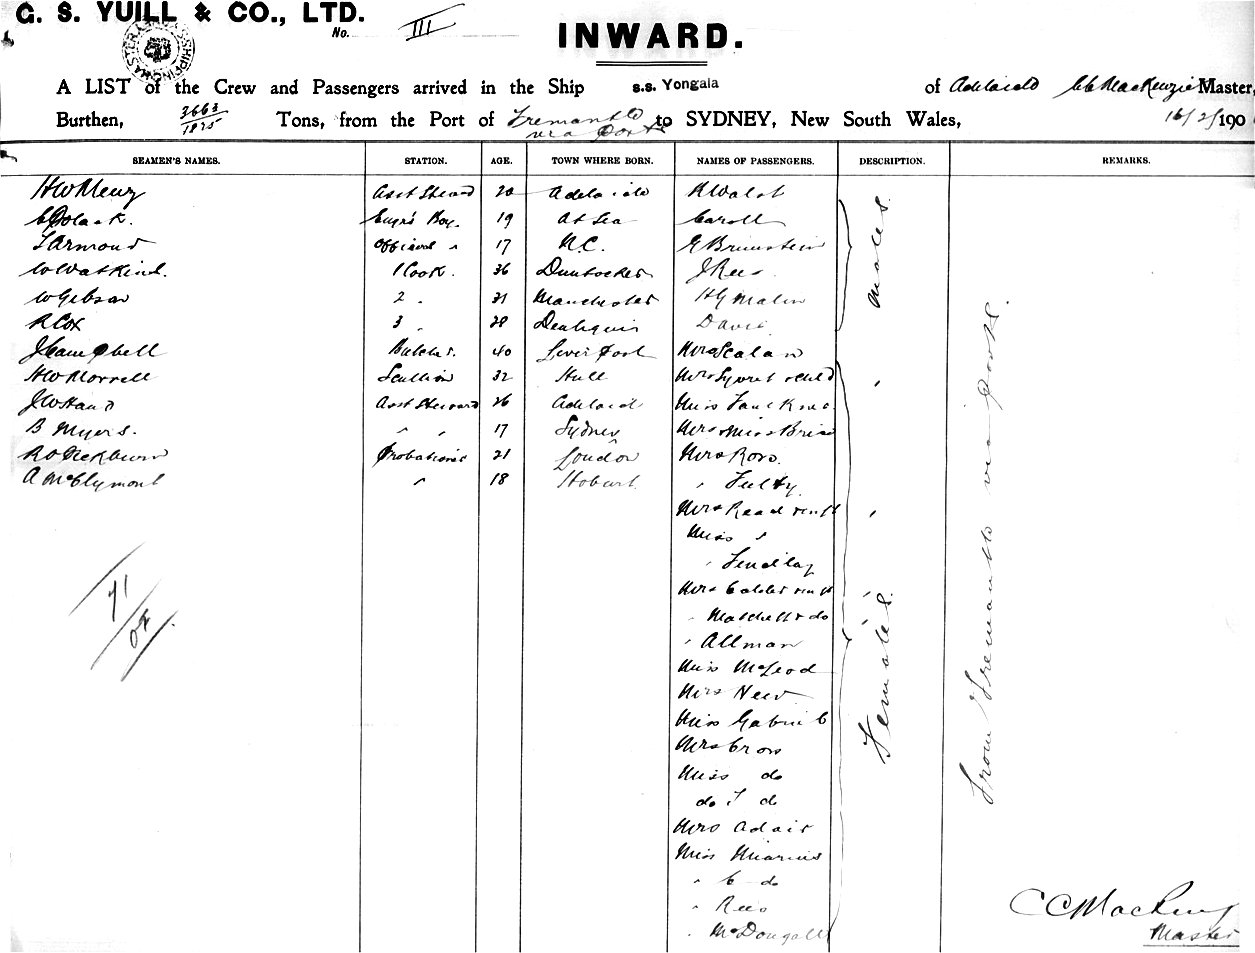 G. S. YUILL & CO., LTD.
No. III
INWARD.
A LIST of the Crew and Passengers arrived in the Ship s.s. Yongala of Adelaide CC MacKenzie Master,
Burthen, 3663/1825 Tons, from the Port of Fremantle via Ports to SYDNEY, New South Wales, 16/2/190
SEAMEN'S NAMES. STATION. AGE. TOWN WHERE BORN. NAMES OF PASSENGERS. DESCRIPTION. REMARKS.
Asst Steward 20 Adelaide R Walsh
19 At Sea Caroll
17 N.C. Brunstein
W Watkind. 1 Cook. 36 J Rees
W Gibson 2 " 31 Manchester H G Malin
R Cox 3 " 28 Deniliquin David
J Campbell Butcher. 40 Liverpool Mrs Scalan
H W Morrell Scullion 32 Hull Mrs child "
J W Hand Asst Steward 26 Adelaide Miss Faulkner
B Myers. " " 17 Sydney Mrs & Miss
21 London Mrs Ross.
A McClymont " 18 Hobart "
Mrs Read & inft "
Miss "
" Findlay
Mrs Calder & inft "
" do "
" Allman
Miss McLeod
Mrs New
Miss Gabriel
Mrs Cross
Miss do
do J do
Mrs Adair
Miss
" C do
" Rees
" McDougall
Males.
Females.
From Fremantle via ports.
41/08
C C MacKenzie
Master